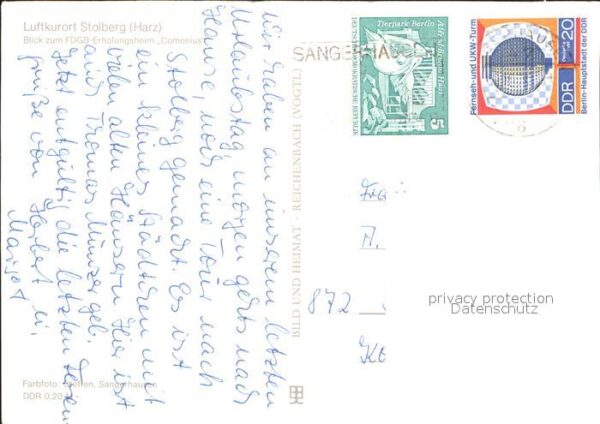 Luftkurort Stolberg (Harz)
Blick zum FDGB-Erholungsheim „Comenius“
Wir haben an unserem letzten
Urlaubstag, morgen gehts nach
Hause, noch eine Tour nach
Stolberg gemacht. Es ist
ein kleines Städtchen mit
vielen alten Häusern. Hier ist
auch Thomas Münzer geb.
Jetzt entgültig die letzten
grüße von Herbert u.
Margot
Farbfoto: Steffen, Sangerhausen
DDR 0,20
BILD UND HEIMAT · REICHENBACH (VOGTL)
SANGERHAUSEN
Tierpark Berlin
Alfred-Brehm-Haus
DEUTSCHE DEMOKRATISCHE REPUBLIK
5
Fernseh- und UKW-Turm
DDR 20
Berlin-Hauptstadt der DDR
A.
872
privacy protection
Datenschutz